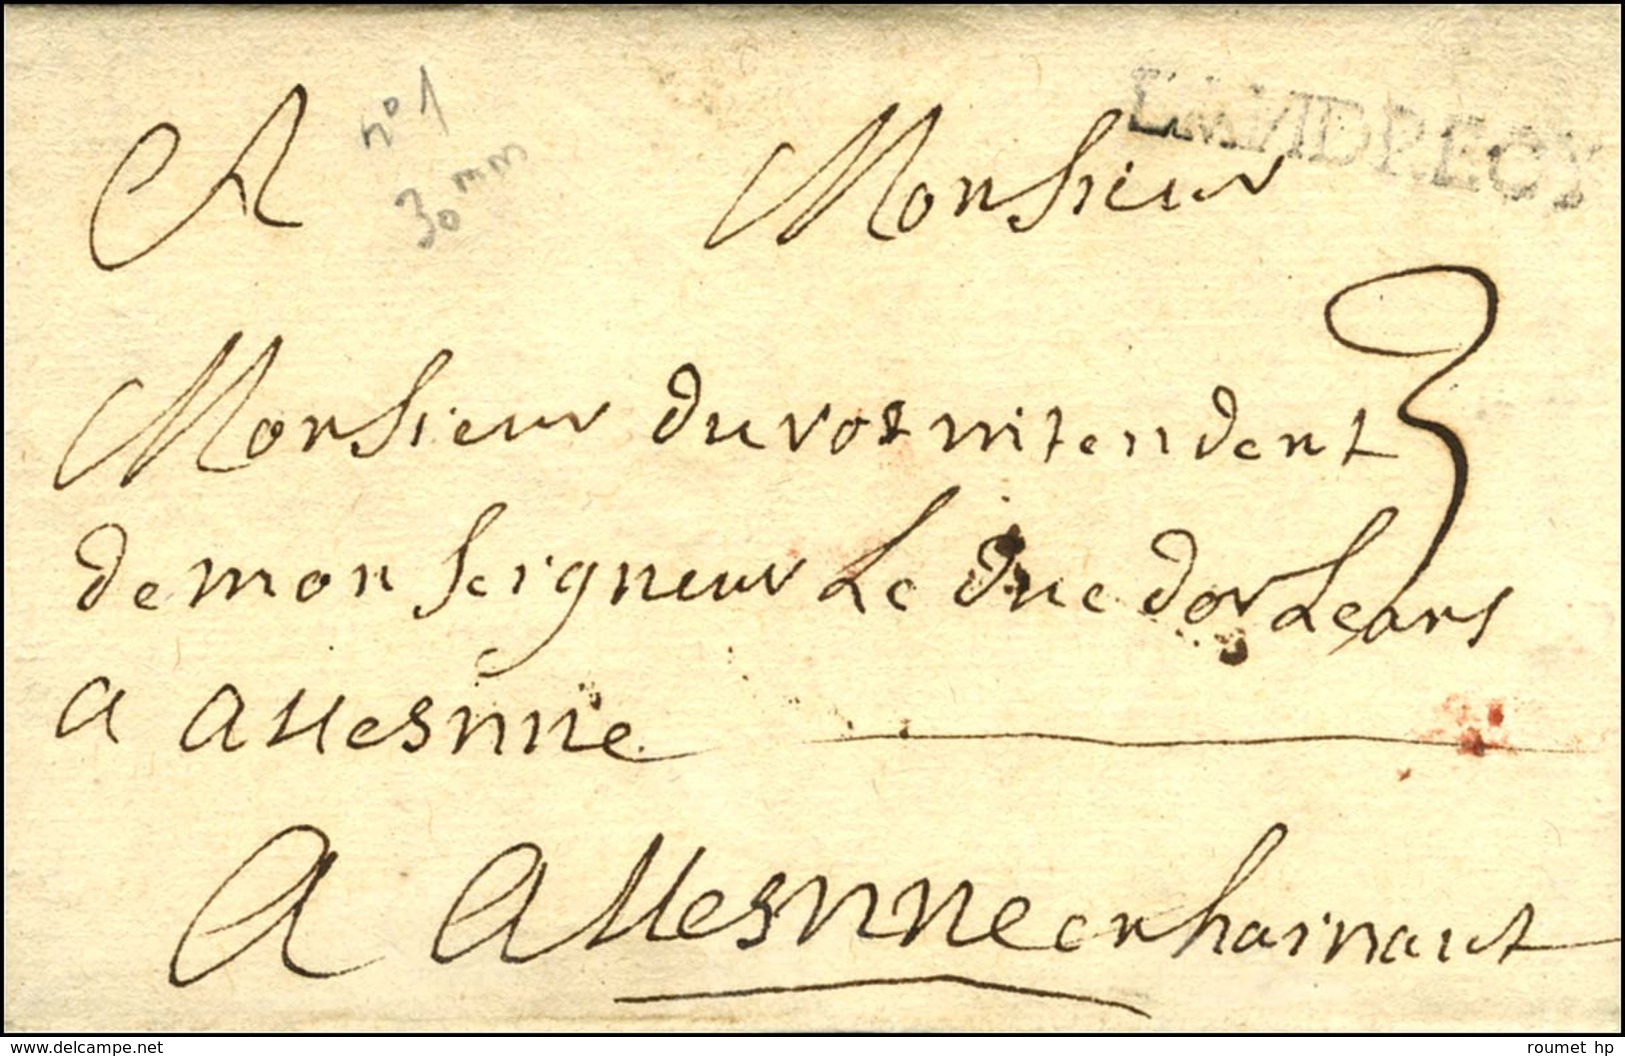 LANDRECY
n° 1
30 mm
A Monsieur
3
Monsieur duvos intendent
de monseigneur Le Duc dorLeans
a auesnne
A Auesnne en hainaut
www.delcampe.net
roumet hp